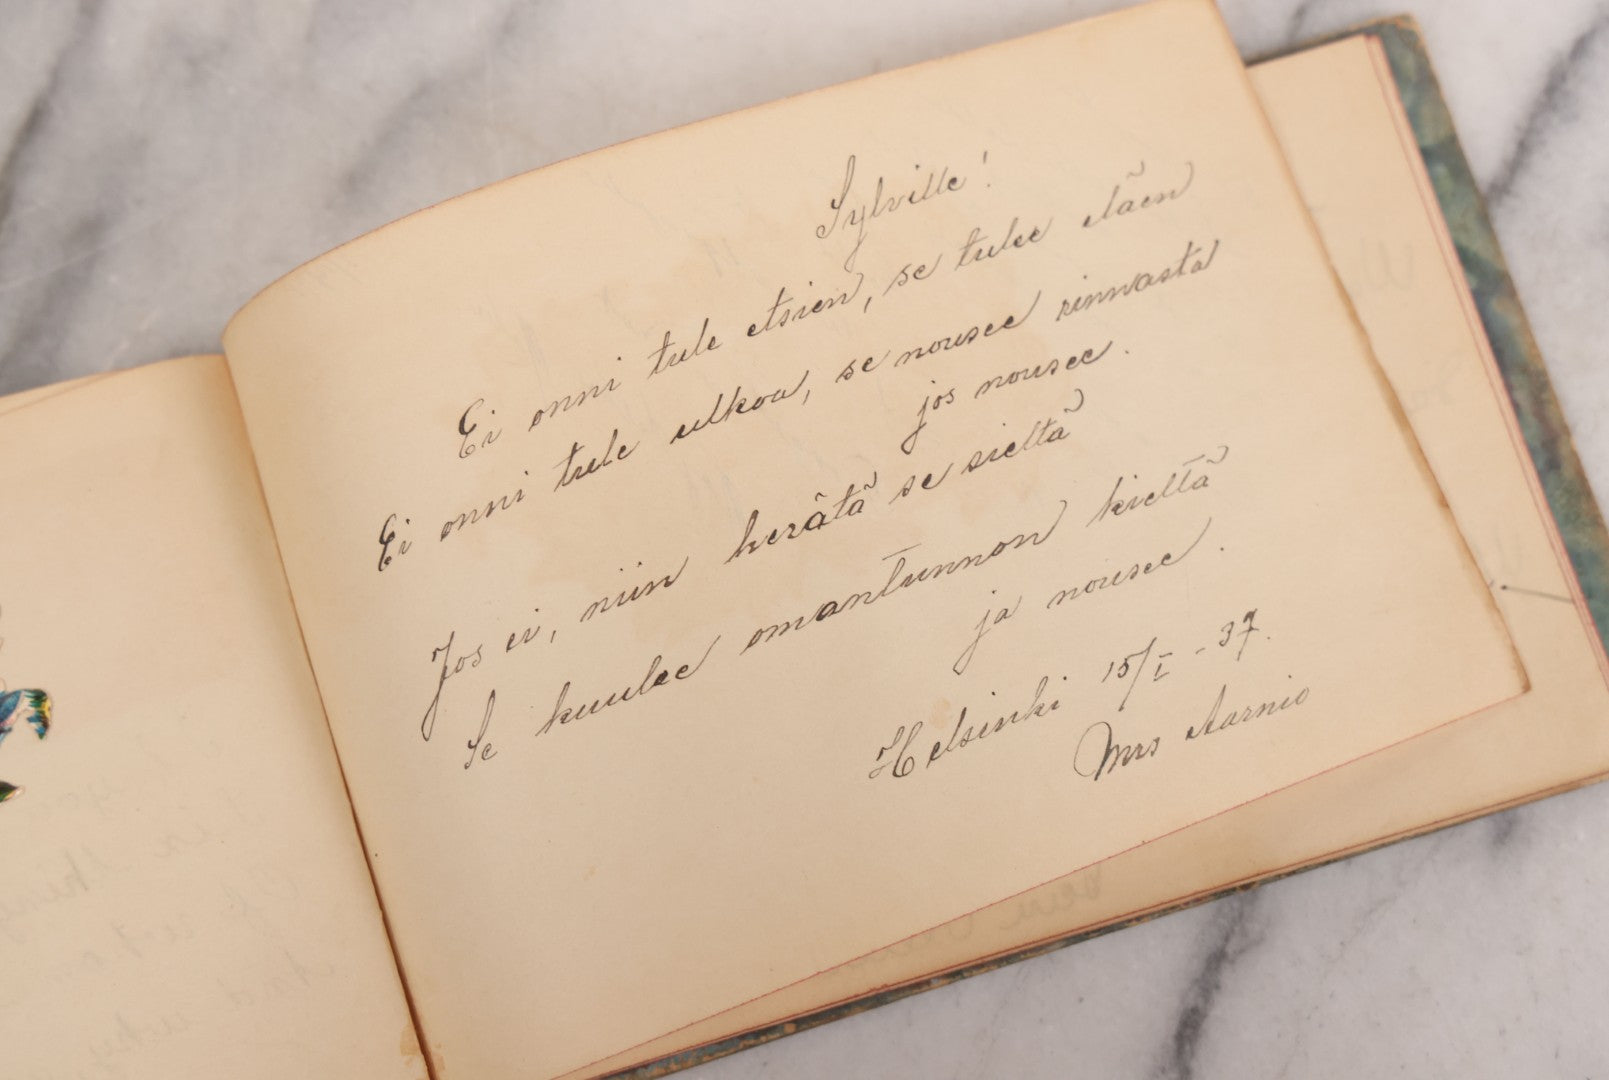 Sylville!
Ei onni tule etsien, se tulee eläen
Ei onni tule ulkoa, se nousee rinnasta
jos nousee.
Jos ei, niin herätä se sieltä
Se kuulee omantunnon kieltä
ja nousee.
Helsinki 15/I - 37.
Mrs Aarnio